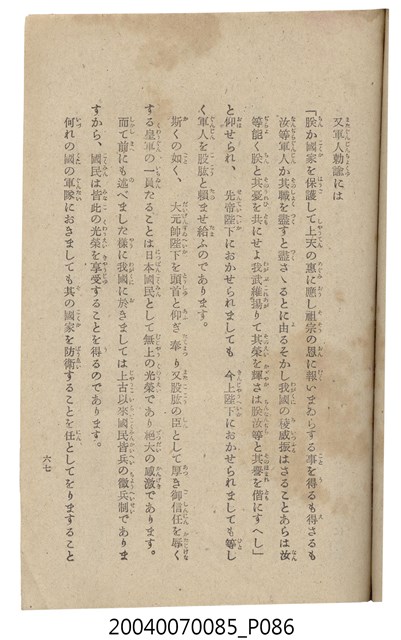 又軍人勅諭には
「朕か國家を保護して上天の惠に應し祖宗の恩に報いまゐらする事を得るも得さるも
汝等軍人か其職を盡すと盡さゝるとに由るそかし我國の稜威振はさることあらは汝
等能く朕と其憂を共にせよ我武維揚りて其榮を耀さは朕汝等と其譽を偕にすへし」
と仰せられ、　先帝陛下におかせられましても　今上陛下におかせられましても等し
く軍人を股肱と頼ませ給ふのであります。
斯くの如く、　大元帥陛下を頭首と仰ぎ奉り又股肱の臣として厚き御信任を辱く
する皇軍の一員たることは日本國民として無上の光榮であり絶大の感激であります。
而て前にも述べました樣に我國に於きましては上古以來國民皆兵の徴兵制でありま
すから、國民は皆此の光榮を享受することを得るのであります。
何れの國の軍隊におきましても其の國家を防衛することを任としてをりますること
六七
20040070085_P086